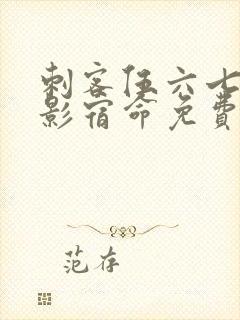 刺客伍六七
影宿命免费
范存